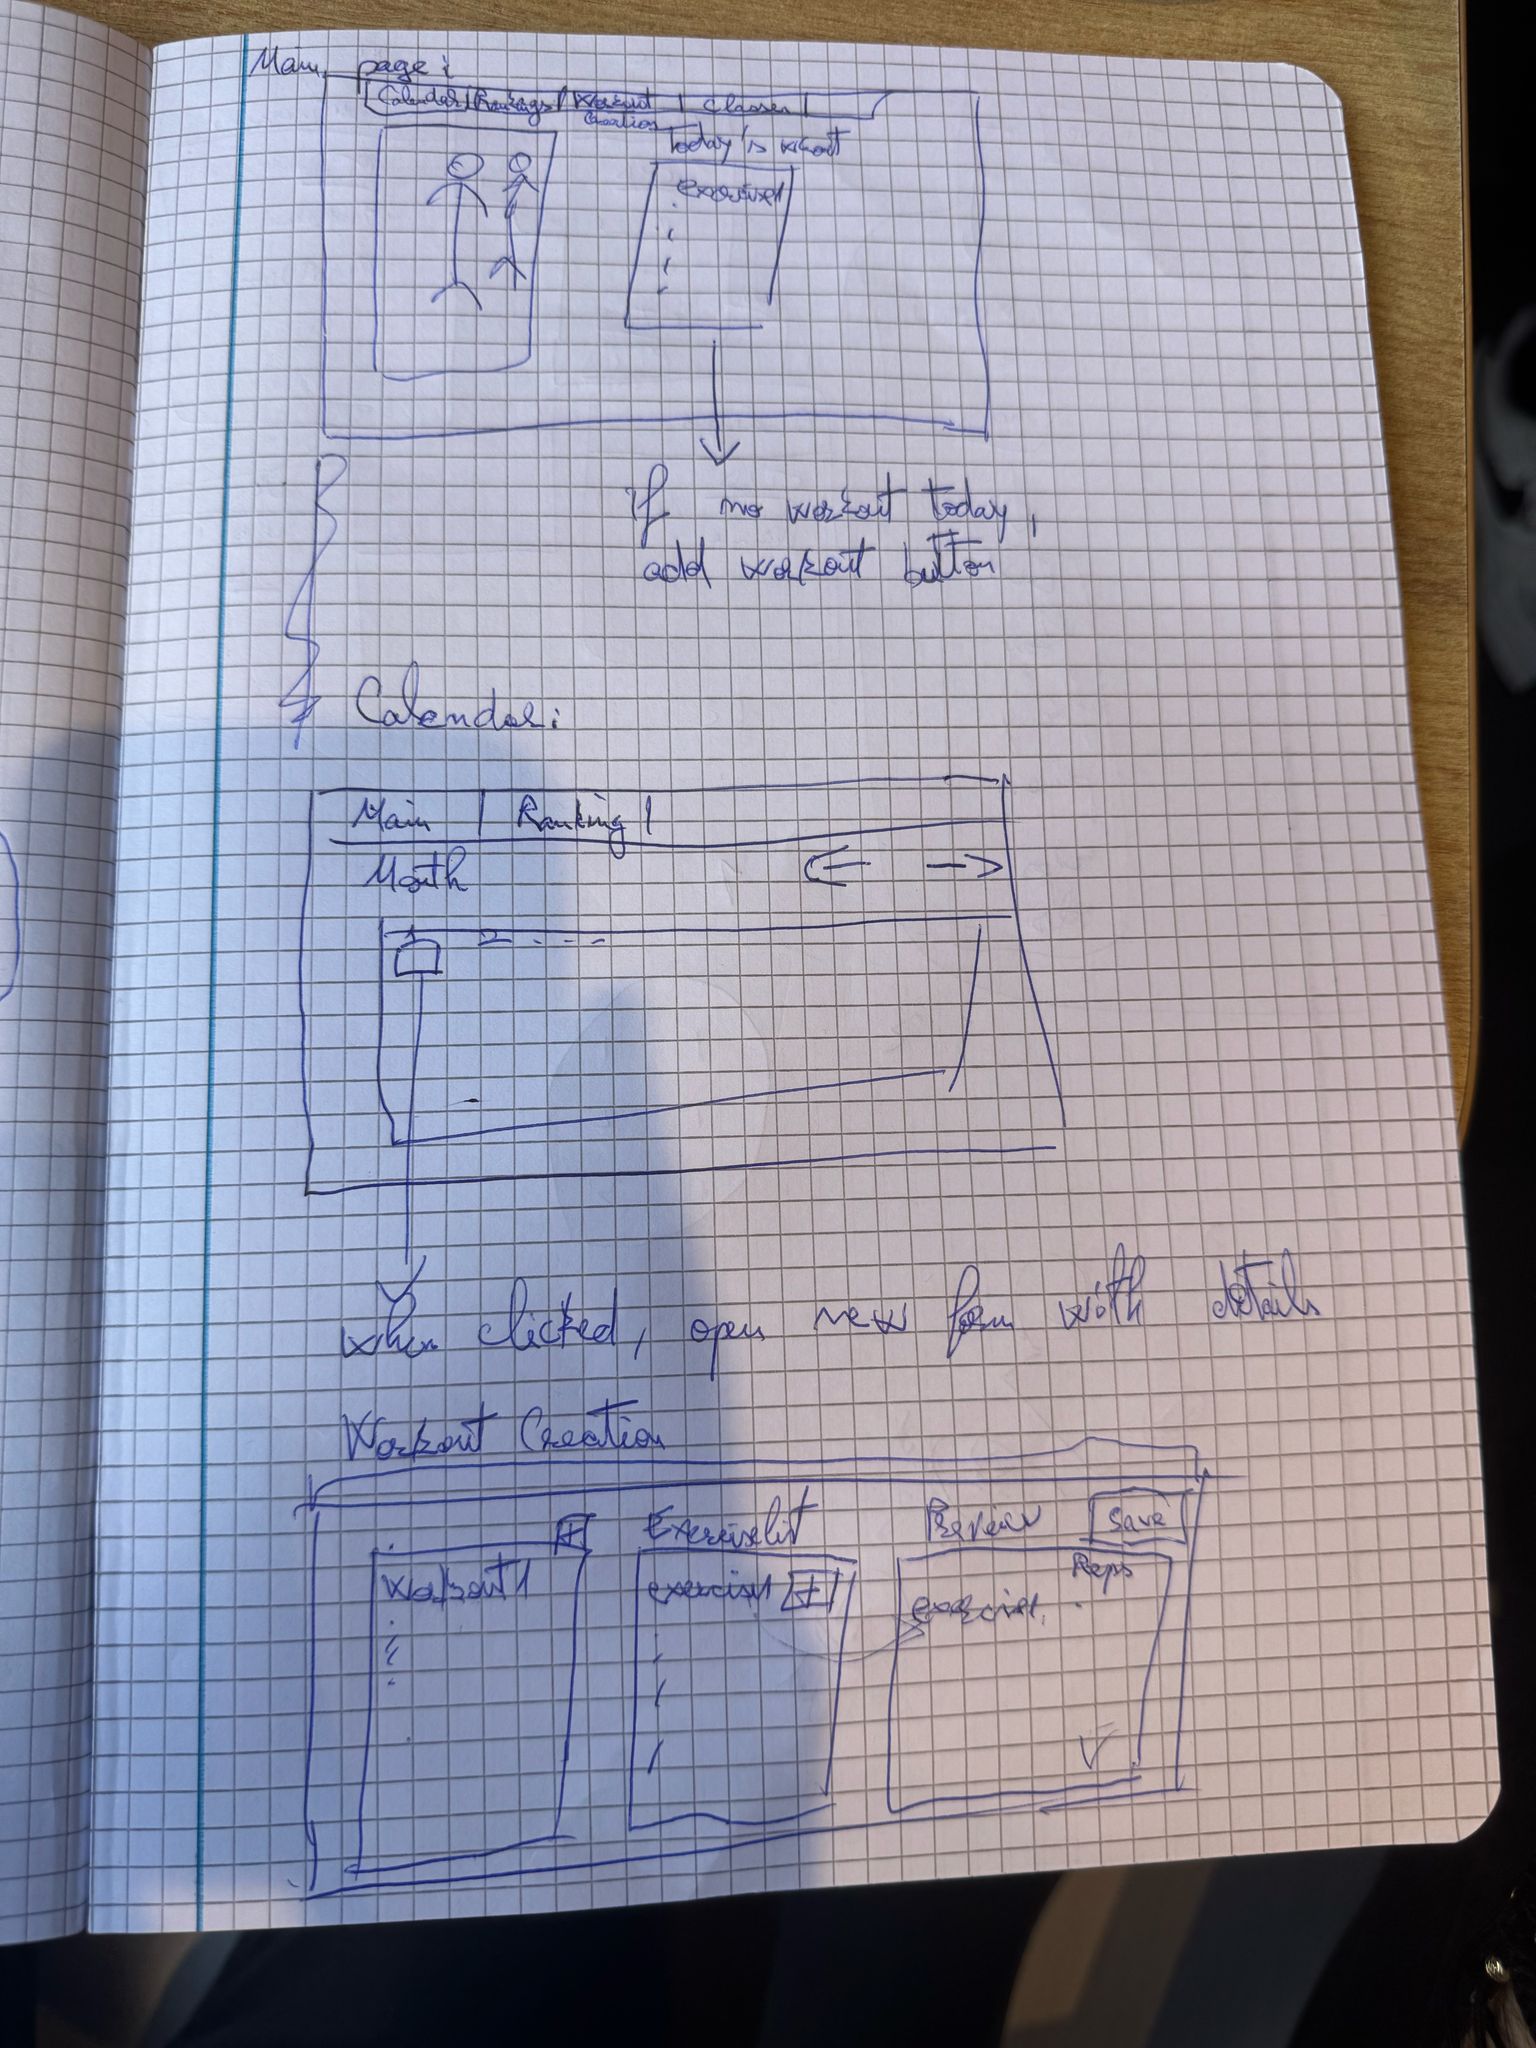 Main page:
Calendar | Rankings | Workout | Classes |
Creation
Today's workout
exercise1
if no workout today,
add workout button
Calendar:
Main | Ranking |
Month
1 2 - - -
when clicked, open new form with details
Workout Creation
+ Exerciselist Preview Save
workout1 exercise1 + Reps
exercise1